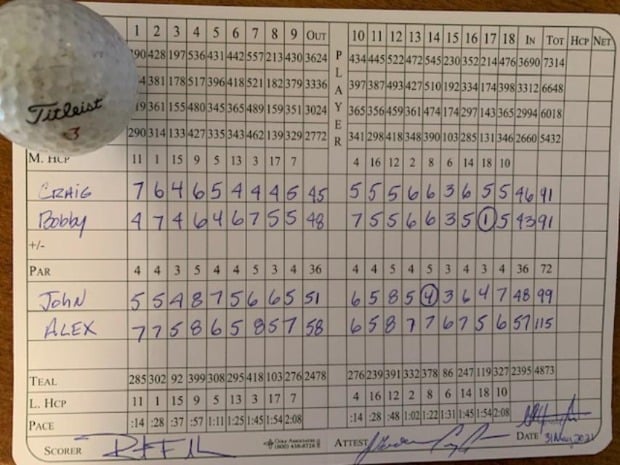 1 2 3 4 5 6 7 8 9 OUT PLAYER 10 11 12 13 14 15 16 17 18 IN TOT HCP NET
90 428 197 536 431 442 557 213 430 3624 434 445 522 472 545 230 352 214 476 3690 7314
4 381 178 517 396 418 521 182 379 3336 397 387 493 427 510 192 334 174 398 3312 6648
19 361 155 480 345 365 489 159 351 3024 365 356 459 361 474 174 297 143 365 2994 6018
290 314 133 427 335 343 462 139 329 2772 341 298 418 348 390 103 285 131 346 2660 5432
Titleist
3
M. HCP 11 1 15 9 5 13 3 17 7 4 16 12 2 8 6 14 18 10
CRAIG 7 6 4 6 5 4 4 4 5 45 5 5 5 6 6 3 6 5 5 46 91
Bobby 4 7 4 6 4 6 7 5 5 48 7 5 5 6 6 3 5 1 5 43 91
+/-
PAR 4 4 3 5 4 4 5 3 4 36 4 4 5 4 5 3 4 3 4 36 72
John 5 5 4 8 7 5 6 6 5 51 6 5 8 5 4 3 6 4 7 48 99
ALEX 7 7 5 8 6 5 8 5 7 58 6 5 8 7 7 6 7 5 6 57 115
TEAL 285 302 92 399 308 295 418 103 276 2478 276 239 391 332 378 86 247 119 327 2395 4873
L. HCP 11 1 15 9 5 13 3 17 7 4 16 12 2 8 6 14 18 10
PACE :14 :28 :37 :57 1:11 1:25 1:45 1:54 2:08 :14 :28 :48 1:02 1:22 1:31 1:45 1:54 2:08
SCORER ATTEST DATE 31 May, 2021